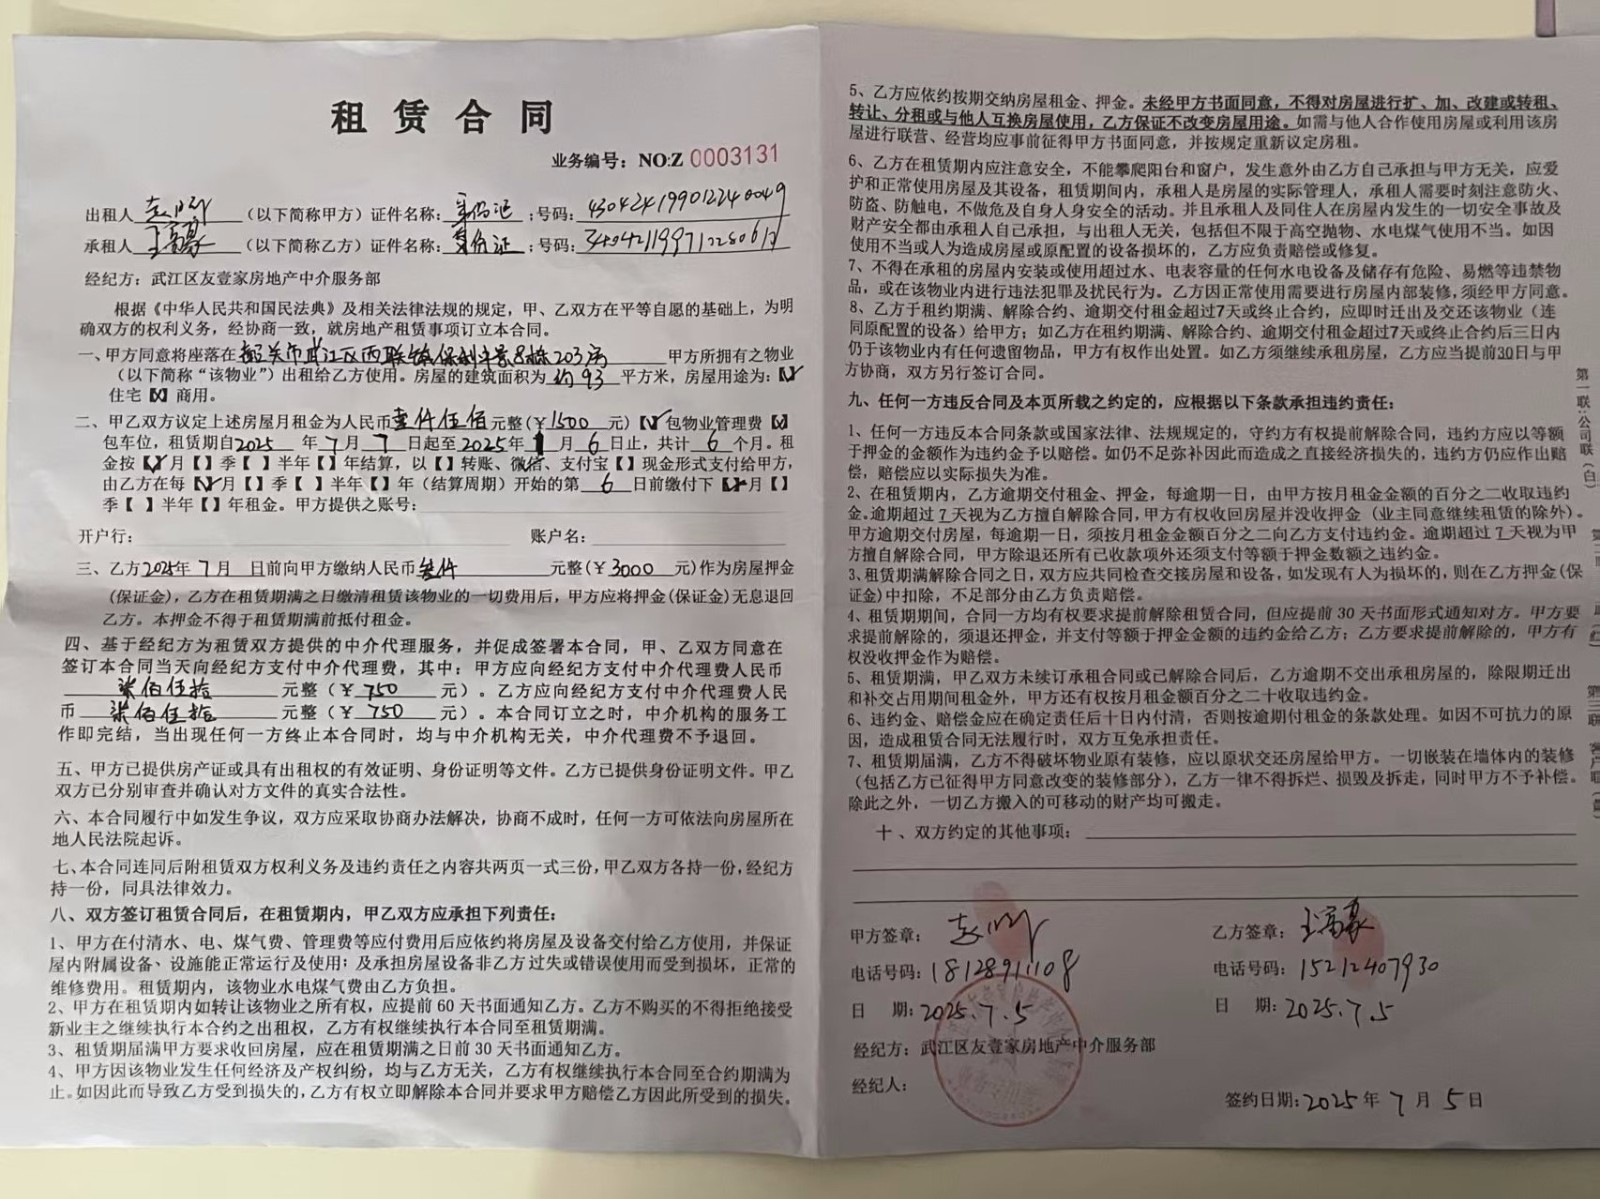 租赁合同
业务编号：NO:Z 0003131
出租人 （以下简称甲方）证件名称：身份证；号码：430424199012240049
承租人 王富豪（以下简称乙方）证件名称：身份证；号码：
经纪方：武江区友壹家房地产中介服务部
根据《中华人民共和国民法典》及相关法律法规的规定，甲、乙双方在平等自愿的基础上，为明
确双方的权利义务，经协商一致，就房地产租赁事项订立本合同。
一、甲方同意将座落在韶关市武江区西联镇保利 8栋203房 甲方所拥有之物业
（以下简称“该物业”）出租给乙方使用。房屋的建筑面积为 约93 平方米，房屋用途为：【✓】
住宅【X】商用。
二、甲乙双方议定上述房屋月租金为人民币壹仟伍佰元整（¥1500 元）【✓】包物业管理费【X】
包车位，租赁期自2025 年 7 月 7 日起至 2025年 1 月 6 日止，共计 6 个月。租
金按【✓】月【 】季【 】半年【 】年结算，以【 】转账、微信、支付宝【 】现金形式支付给甲方，
由乙方在每【✓】月【 】季【 】半年【 】年（结算周期）开始的第 6 日前缴付下【✓】月【 】
季【 】半年【 】年租金。甲方提供之账号：
开户行： 账户名：
三、乙方2025年 7月 日前向甲方缴纳人民币叁仟 元整（¥3000 元）作为房屋押金
（保证金），乙方在租赁期满之日缴清租赁该物业的一切费用后，甲方应将押金（保证金）无息退回
乙方。本押金不得于租赁期满前抵付租金。
四、基于经纪方为租赁双方提供的中介代理服务，并促成签署本合同，甲、乙双方同意在
签订本合同当天向经纪方支付中介代理费，其中：甲方应向经纪方支付中介代理费人民币
柒佰伍拾 元整（¥ 750 元）。乙方应向经纪方支付中介代理费人民
币 柒佰伍拾 元整（¥ 750 元）。本合同订立之时，中介机构的服务工
作即完结，当出现任何一方终止本合同时，均与中介机构无关，中介代理费不予退回。
五、甲方已提供房产证或具有出租权的有效证明、身份证明等文件。乙方已提供身份证明文件。甲乙
双方已分别审查并确认对方文件的真实合法性。
六、本合同履行中如发生争议，双方应采取协商办法解决，协商不成时，任何一方可依法向房屋所在
地人民法院起诉。
七、本合同连同后附租赁双方权利义务及违约责任之内容共两页一式三份，甲乙双方各持一份，经纪方
持一份，同具法律效力。
八、双方签订租赁合同后，在租赁期内，甲乙双方应承担下列责任：
1、甲方在付清水、电、煤气费、管理费等应付费用后应依约将房屋及设备交付给乙方使用，并保证
屋内附属设备、设施能正常运行及使用；及承担房屋设备非乙方过失或错误使用而受到损坏，正常的
维修费用。租赁期内，该物业水电煤气费由乙方负担。
2、甲方在租赁期内如转让该物业之所有权，应提前 60 天书面通知乙方。乙方不购买的不得拒绝接受
新业主之继续执行本合约之出租权，乙方有权继续执行本合同至租赁期满。
3、租赁期届满甲方要求收回房屋，应在租赁期满之日前 30 天书面通知乙方。
4、甲方因该物业发生任何经济及产权纠纷，均与乙方无关，乙方有权继续执行本合同至合约期满为
止。如因此而导致乙方受到损失的，乙方有权立即解除本合同并要求甲方赔偿乙方因此所受到的损失。
5、乙方应依约按期交纳房屋租金、押金。未经甲方书面同意，不得对房屋进行扩、加、改建或转租、
转让、分租或与他人互换房屋使用，乙方保证不改变房屋用途。如需与他人合作使用房屋或利用该房
屋进行联营、经营均应事前征得甲方书面同意，并按规定重新议定房租。
6、乙方在租赁期内应注意安全，不能攀爬阳台和窗户，发生意外由乙方自己承担与甲方无关，应爱
护和正常使用房屋及其设备，租赁期间内，承租人是房屋的实际管理人，承租人需要时刻注意防火、
防盗、防触电，不做危及自身人身安全的活动。并且承租人及同住人在房屋内发生的一切安全事故及
财产安全都由承租人自己承担，与出租人无关，包括但不限于高空抛物、水电煤气使用不当。如因
使用不当或人为造成房屋或原配置的设备损坏的，乙方应负责赔偿或修复。
7、不得在承租的房屋内安装或使用超过水、电表容量的任何水电设备及储存有危险、易燃等违禁物
品，或在该物业内进行违法犯罪及扰民行为。乙方因正常使用需要进行房屋内部装修，须经甲方同意。
8、乙方于租约期满、解除合约、逾期交付租金超过7天或终止合约，应即时迁出及交还该物业（连
同原配置的设备）给甲方；如乙方在租约期满、解除合约、逾期交付租金超过7天或终止合约后三日内
仍于该物业内有任何遗留物品，甲方有权作出处置。如乙方须继续承租房屋，乙方应当提前30日与甲
方协商，双方另行签订合同。
九、任何一方违反合同及本页所载之约定的，应根据以下条款承担违约责任：
1、任何一方违反本合同条款或国家法律、法规规定的，守约方有权提前解除合同，违约方应以等额
于押金的金额作为违约金予以赔偿。如仍不足弥补因此而造成之直接经济损失的，违约方仍应作出赔
偿，赔偿应以实际损失为准。
2、在租赁期内，乙方逾期交付租金、押金，每逾期一日，由甲方按月租金金额的百分之二收取违约
金。逾期超过 7 天视为乙方擅自解除合同，甲方有权收回房屋并没收押金（业主同意继续租赁的除外）。
甲方逾期交付房屋，每逾期一日，须按月租金金额百分之二向乙方支付违约金。逾期超过 7 天视为甲
方擅自解除合同，甲方除退还所有已收款项外还须支付等额于押金数额之违约金。
3、租赁期满解除合同之日，双方应共同检查交接房屋和设备，如发现有人为损坏的，则在乙方押金（保
证金）中扣除，不足部分由乙方负责赔偿。
4、租赁期期间，合同一方均有权要求提前解除租赁合同，但应提前 30 天书面形式通知对方。甲方要
求提前解除的，须退还押金，并支付等额于押金金额的违约金给乙方；乙方要求提前解除的，甲方有
权没收押金作为赔偿。
5、租赁期满，甲乙双方未续订承租合同或已解除合同后，乙方逾期不交出承租房屋的，除限期迁出
和补交占用期间租金外，甲方还有权按月租金额百分之二十收取违约金。
6、违约金、赔偿金应在确定责任后十日内付清，否则按逾期付租金的条款处理。如因不可抗力的原
因，造成租赁合同无法履行时，双方互免承担责任。
7、租赁期届满，乙方不得破坏物业原有装修，应以原状交还房屋给甲方。一切嵌装在墙体内的装修
（包括乙方已征得甲方同意改变的装修部分），乙方一律不得拆烂、损毁及拆走，同时甲方不予补偿。
除此之外，一切乙方搬入的可移动的财产均可搬走。
十、双方约定的其他事项：
甲方签章： 乙方签章：王富豪
电话号码：18128911108 电话号码：15212407930
日 期：2025.7.5 日 期：2025.7.5
经纪方：武江区友壹家房地产中介服务部
经纪人：
签约日期：2025 年 7 月 5 日
第一联：公司联（白）